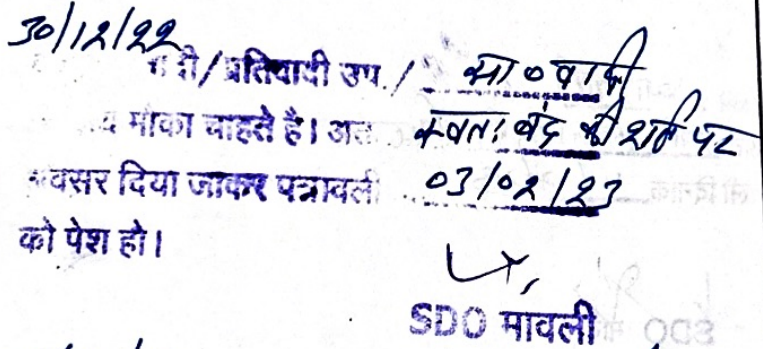 30/12/22
दी/प्रतिवादी उप./ सा० वादी
व मौका चाहते है। अत स्वतः बंद की शर्त पर
वसर दिया जाकर पत्रावली 03/02/23
को पेश हो।
SDO मावली